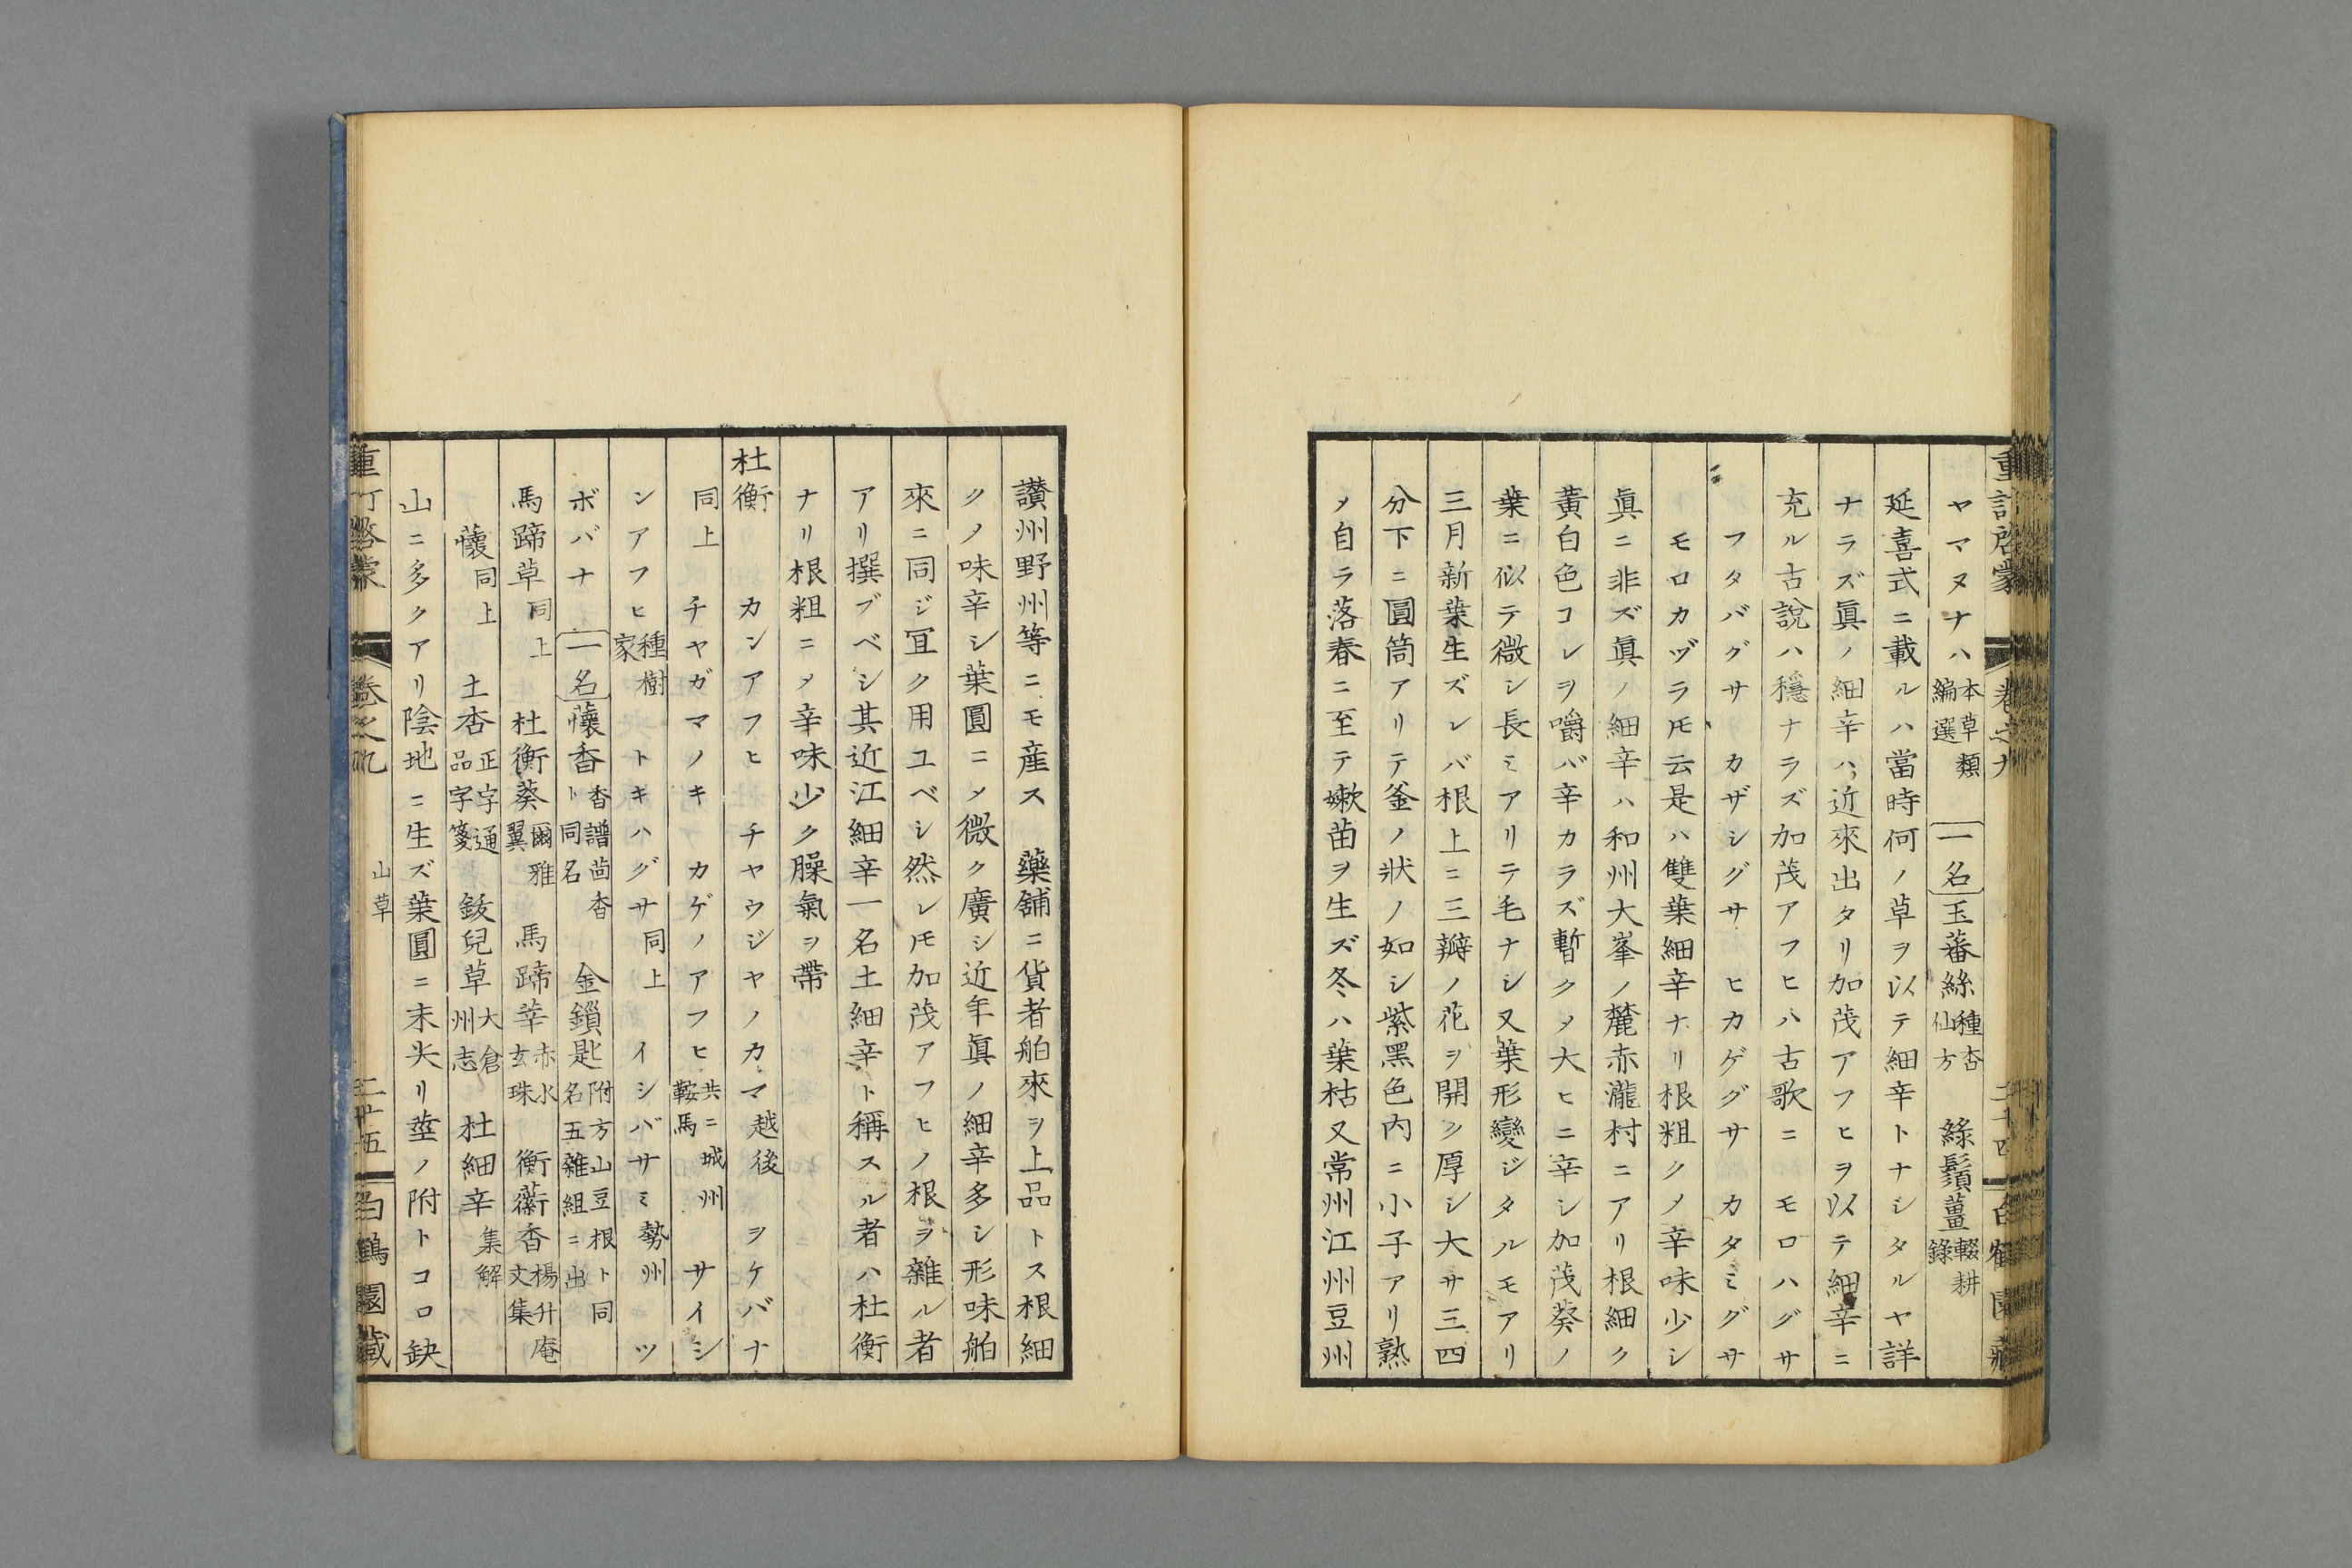 ヤマヌナハ本草類編選 一名玉蕃絲種杏仙方 綠鬚薑輟耕錄
延喜式ニ載ルハ當時何ノ草ヲ以テ細辛トナシタルヤ詳
ナラズ眞ノ細辛ハ近來出タリ加茂アフヒヲ以テ細辛ニ
充ル古說ハ穩ナラズ加茂アフヒハ古歌ニモロハグサ
フタバグサ カザシグサ ヒカゲグサ カタミグサ
モロカヅラ𪜈云是ハ雙葉細辛ナリ根粗クメ辛味少シ
眞ニ非ズ眞ノ細辛ハ和州大峯ノ麓赤瀧村ニアリ根細ク
黃白色コレヲ嚼バ辛カラズ暫クメ大ヒニ辛シ加茂葵ノ
葉ニ似テ微シ長ミアリテ毛ナシ又葉形變ジタルモアリ
三月新葉生ズレバ根上ニ三瓣ノ花ヲ開ク厚シ大サ三四
分下ニ圓筒アリテ釜ノ狀ノ如シ紫黑色内ニ小子アリ熟
メ自ラ落春ニ至テ嫩苗ヲ生ズ冬ハ葉枯又常州江州豆州
讃州野州等ニモ産ス 藥舖ニ貨者舶來ヲ上品トス根細
クメ味辛シ葉圓ニメ微ク廣シ近年眞ノ細辛多シ形味舶
來ニ同ジ冝ク用ユベシ然レ𪜈加茂アフヒノ根ヲ雜ル者
アリ撰ブベシ其近江細辛一名土細辛ト稱スル者ハ杜衡
ナリ根粗ニメ辛味少ク臊氣ヲ帶
杜衡 カンアフヒ チヤウジヤノカマ越後 ヲケバナ
同上 チヤガマノキ カゲノアフヒ共ニ城州鞍馬 サイシ
ンアフヒ種樹家 トキハグサ同上 イシバサミ勢州 ツ
ボバナ 一名蘹香香譜茴香ト同名 金鎖匙附方山豆根ト同名五雜組ニ出
馬蹄草同上 杜衡葵爾雅翼 馬蹄莘赤水玄珠 衡蘅香楊升庵文集
蘹同上 土杏正字通品字箋 鈸兒草大倉州志 杜細辛集解
山ニ多クアリ陰地ニ生ズ葉圓ニ末尖リ莖ノ附トコロ缺
重訂啓蒙 卷之九 山草 二十五 白鶴園藏